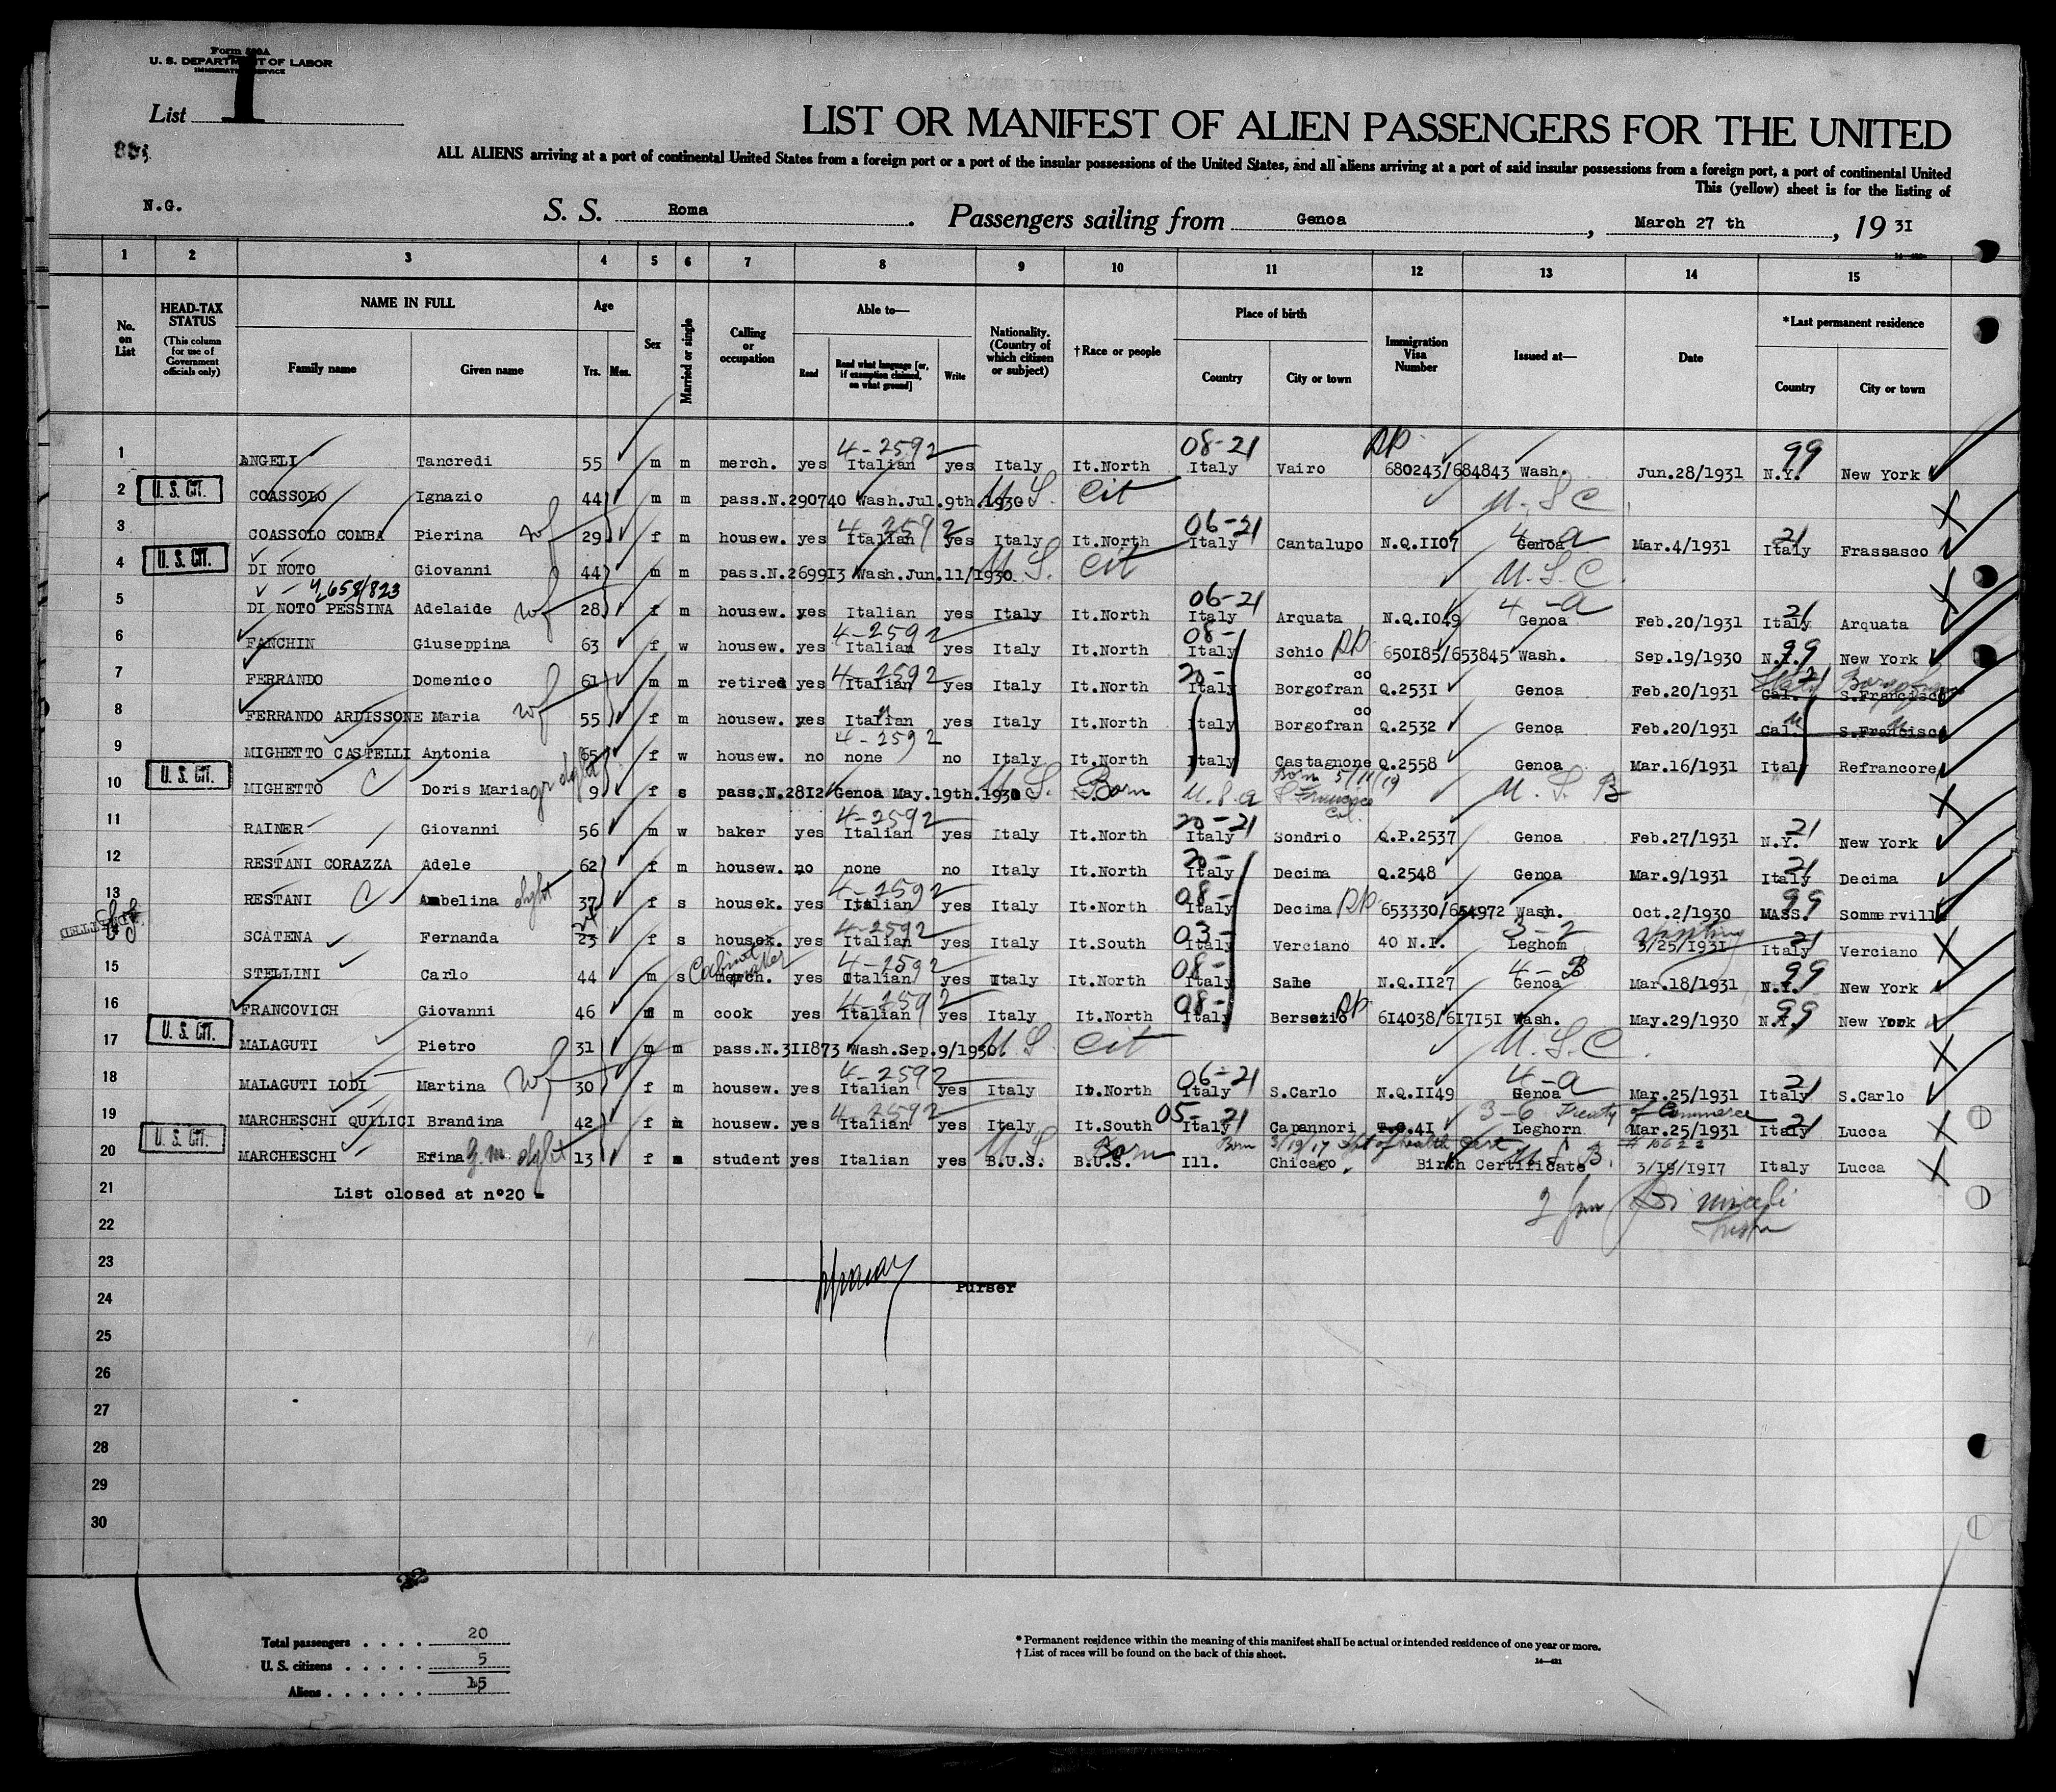 Form 500A
U. S. DEPARTMENT OF LABOR
IMMIGRATION SERVICE
List 1
LIST OR MANIFEST OF ALIEN PASSENGERS FOR THE UNITED
ALL ALIENS arriving at a port of continental United States from a foreign port or a port of the insular possessions of the United States, and all aliens arriving at a port of said insular possessions from a foreign port, a port of continental United
This (yellow) sheet is for the listing of
N.G.
S. S. Roma. Passengers sailing from Genoa, March 27 th, 1931
1 2 3 4 5 6 7 8 9 10 11 12 13 14 15
No. on List
HEAD-TAX STATUS (This column for use of Government officials only)
NAME IN FULL
Family name Given name
Age
Yrs. Mos.
Sex
Married or single
Calling or occupation
Able to—
Read Read what language [or, if exemption claimed, on what ground] Write
Nationality. (Country of which citizen or subject)
†Race or people
Place of birth
Country City or town
Immigration Visa Number
Issued at—
Date
*Last permanent residence
Country City or town
4-2592 08-21 99
1 ANGELI Tancredi 55 m m merch. yes Italian yes Italy It.North Italy Vairo 680243/684843 Wash. Jun.28/1931 N.Y. New York
2 U. S. CIT. COASSOLO Ignazio 44 m m pass.N.290740 Wash.Jul.9th.1930 U.S. Cit U.S.C.
4-2592 06-21 4-a 21
3 COASSOLO COMBA Pierina wf 29 f m housew. yes Italian yes Italy It.North Italy Cantalupo N.Q.1107 Genoa Mar.4/1931 Italy Frassasco
4 U. S. CIT. DI NOTO Giovanni 44 m m pass.N.269913 Wash.Jun.11/1930 U.S. Cit U.S.C.
06-21 4-a 21
5 DI NOTO PESSINA Adelaide wf 28 f m housew. yes Italian yes Italy It.North Italy Arquata N.Q.1049 Genoa Feb.20/1931 Italy Arquata
4-2592 08- 99
6 FANCHIN Giuseppina 63 f w housew. yes Italian yes Italy It.North Italy Schio 650185/653845 Wash. Sep.19/1930 N.Y. New York
4-2592 20- 21
7 FERRANDO Domenico 61 m m retired yes Italian yes Italy It.North Italy Borgofranco Q.2531 Genoa Feb.20/1931 Cal. S.Francisco
8 FERRANDO ARDISSONE Maria wf 55 f m housew. yes Italian yes Italy It.North Italy Borgofranco Q.2532 Genoa Feb.20/1931 Cal. S.Francisco
4-2592
9 MIGHETTO CASTELLI Antonia 65 f w housew. no none no Italy It.North Italy Castagnone Q.2558 Genoa Mar.16/1931 Italy Refrancore
10 U. S. CIT. MIGHETTO Doris Maria gr dght 9 f s pass.N.2812 Genoa May.19th.1930 U.S. Born U.S.a S Francisco Cal. U.S.B
4-2592 20-21 21
11 RAINER Giovanni 56 m w baker yes Italian yes Italy It.North Italy Sondrio Q.P.2537 Genoa Feb.27/1931 N.Y. New York
20- 21
12 RESTANI CORAZZA Adele 62 f m housew. no none no Italy It.North Italy Decima Q.2548 Genoa Mar.9/1931 Italy Decima
4-2592 08- 99
13 RESTANI Ambelina dght 37 f s housek. yes Italian yes Italy It.North Italy Decima 653330/654972 Wash. Oct.2/1930 MASS. Sommervill
4-2592 03- 3-2 21
SCATENA Fernanda 23 f s housek. yes Italian yes Italy It.South Italy Verciano 40 N.I. Leghorn 3/25/1931 Italy Verciano
Cabinet maker 4-2592 08- 4-B 99
15 STELLINI Carlo 44 m s merch. yes Italian yes Italy It.North Italy Salle N.Q.1127 Genoa Mar.18/1931 N.Y. New York
4-2592 08- 99
16 FRANCOVICH Giovanni 46 m m cook yes Italian yes Italy It.North Italy Bersezio 614038/617151 Wash. May.29/1930 N.Y. New York
17 U. S. CIT. MALAGUTI Pietro 31 m m pass.N.311873 Wash.Sep.9/1930 U.S. Cit U.S.C.
4-2592 06-21 4-a 21
18 MALAGUTI LODI Martina wf 30 f m housew. yes Italian yes Italy It.North Italy S.Carlo N.Q.1149 Genoa Mar.25/1931 Italy S.Carlo
4-2592 05-21 3-6 Treaty of Commerce 21
19 MARCHESCHI QUILICI Brandina 42 f m housew. yes Italian yes Italy It.South Italy Capannori T.C.41 Leghorn Mar.25/1931 Italy Lucca
20 U. S. CIT. MARCHESCHI Erina dght 13 f s student yes Italian yes B.U.S. B.U.S. Born Ill. Chicago Birth Certificate 3/19/1917 Italy Lucca
21 List closed at n°20 -
22
23
24 Purser
25
26
27
28
29
30
Total passengers . . . . 20
U. S. citizens . . . . . 5
Aliens . . . . . . 15
* Permanent residence within the meaning of this manifest shall be actual or intended residence of one year or more.
† List of races will be found on the back of this sheet.